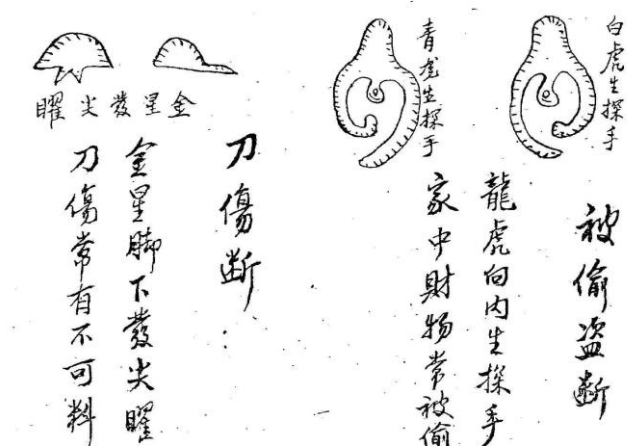 白虎生探手
青龙生探手
被偷盗断
龍虎向内生探手
家中財物常被偷
金星發尖曜
刀傷断：
金星脚下發尖曜
刀傷常有不可料